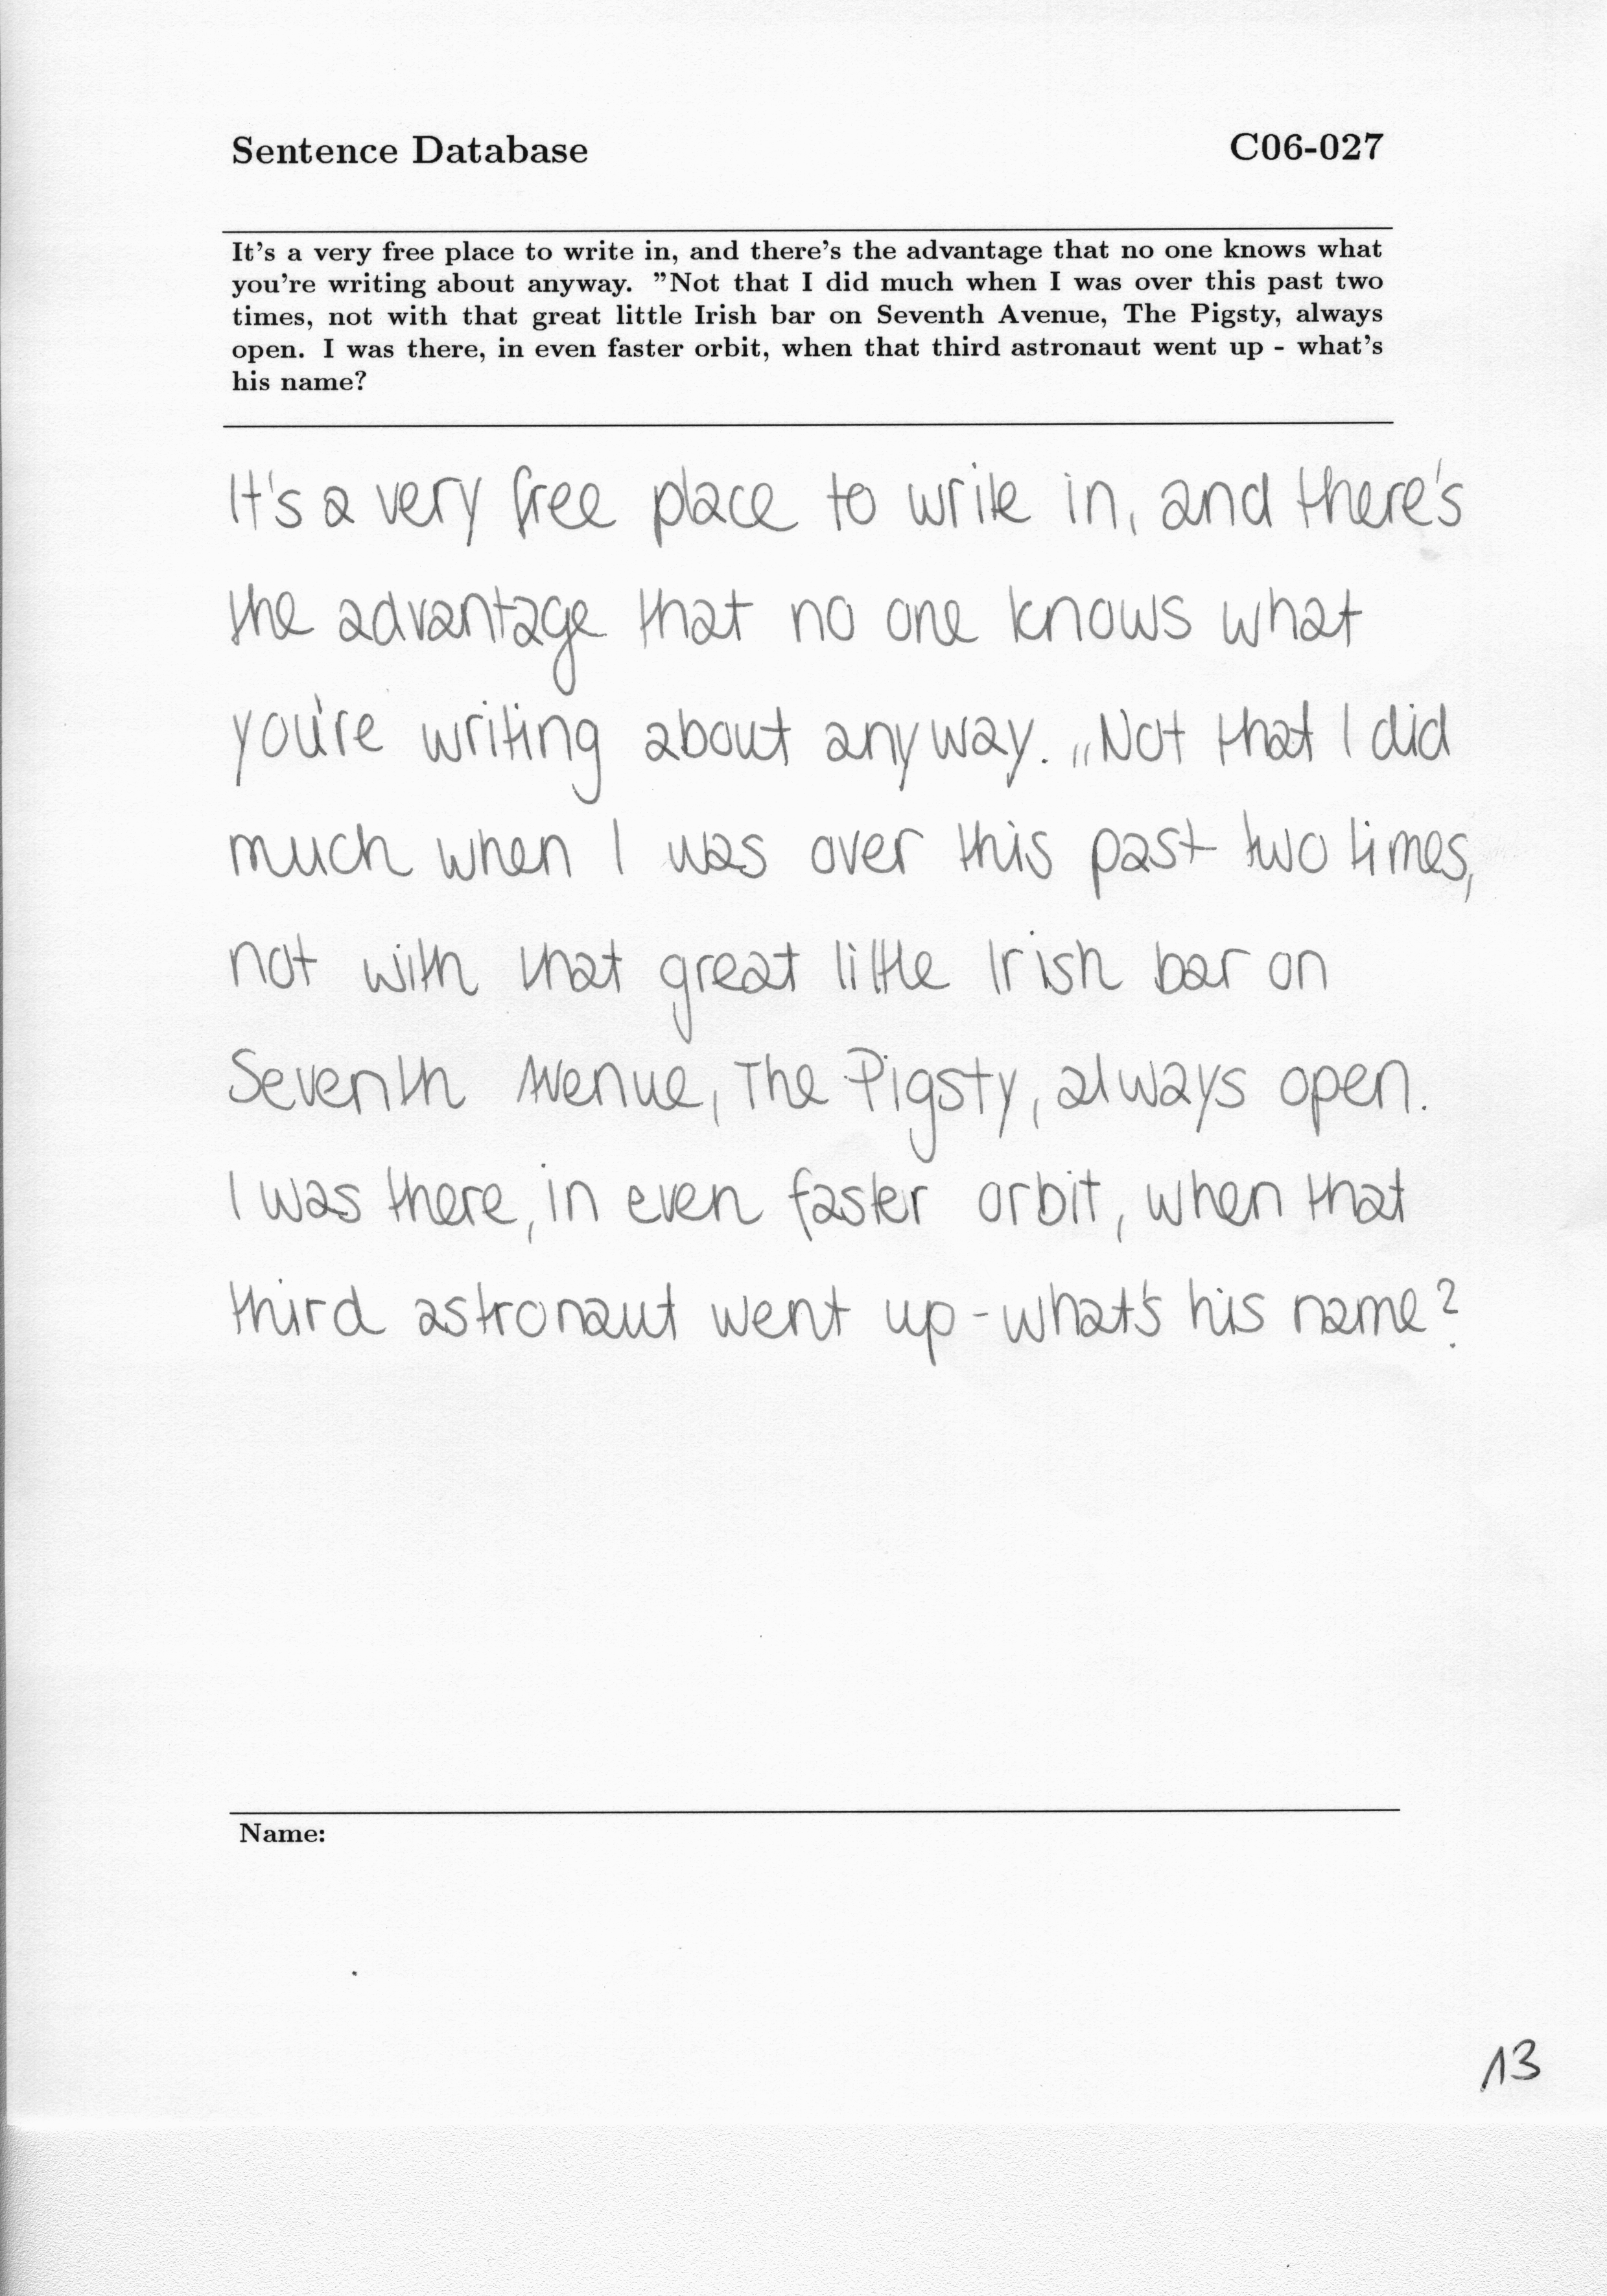 Sentence Database C06-027
It's a very free place to write in, and there's the advantage that no one knows what
you're writing about anyway. ”Not that I did much when I was over this past two
times, not with that great little Irish bar on Seventh Avenue, The Pigsty, always
open. I was there, in even faster orbit, when that third astronaut went up - what's
his name?
It's a very free place to write in, and there's
the advantage that no one knows what
you're writing about anyway. „Not that I did
much when I was over this past two times,
not with that great little Irish bar on
Seventh Avenue, The Pigsty, always open.
I was there, in even faster orbit, when that
third astronaut went up - what's his name?
Name:
13